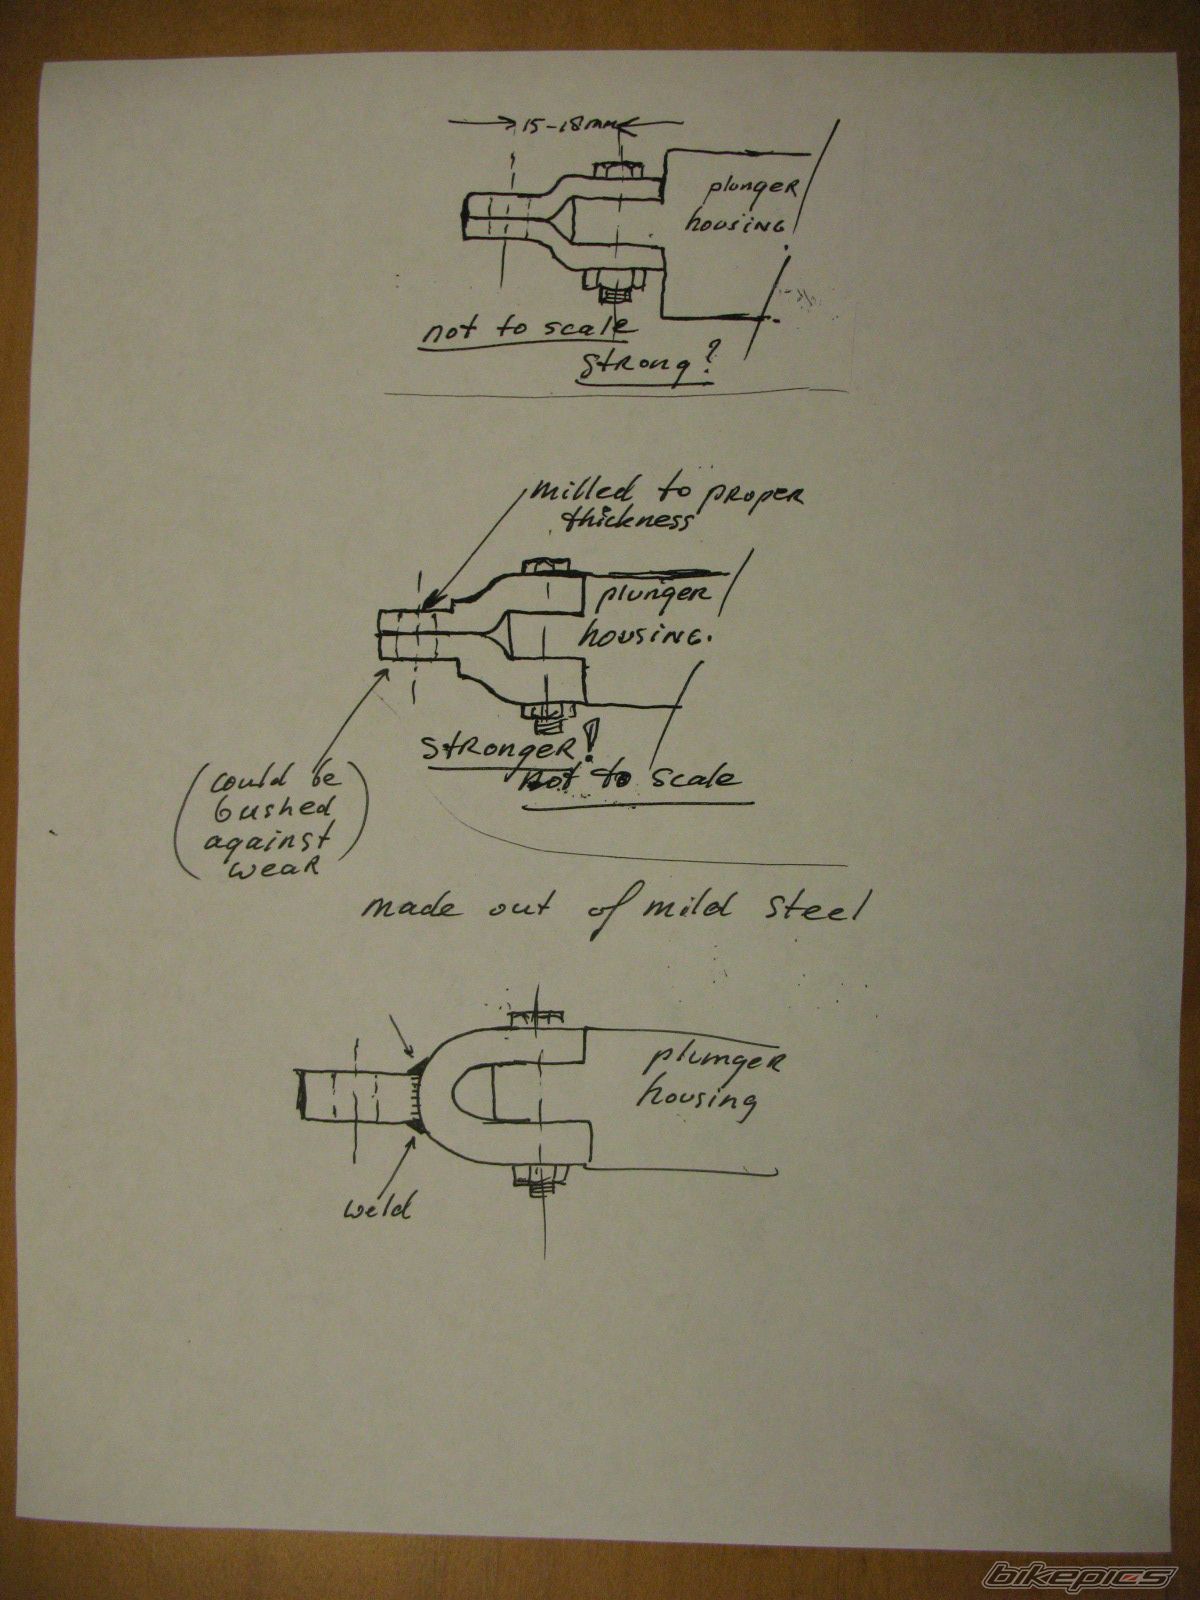 15-18mm
plunger
housing
not to scale
strong?
milled to proper
thickness
plunger
housing.
stronger!
not to scale
(could be
bushed
against
wear)
made out of mild steel
plumger
housing
weld
bikepics